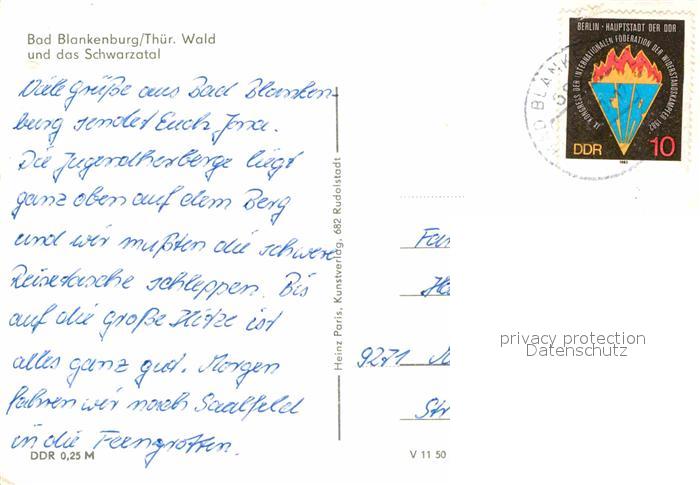 Bad Blankenburg/Thür. Wald
und das Schwarzatal
Viele Grüße aus Bad Blanken-
burg sendet Euch Jena.
Die Jugendherberge liegt
ganz oben auf dem Berg
und wir mußten die schwere
Reisetasche schleppen. Bis
auf die große Hitze ist
alles ganz gut. Morgen
fahren wir nach Saalfeld
in die Feengrotten.
DDR 0,25 M
Heinz Paris, Kunstverlag, 682 Rudolstadt
V 11 50
BERLIN · HAUPTSTADT DER DDR
IX. KONGRESS DER INTERNATIONALEN FÖDERATION DER WIDERSTANDSKÄMPFER 1982
DDR 10
1982
D BLANK
Fam
Ha
9271
Str
privacy protection
Datenschutz